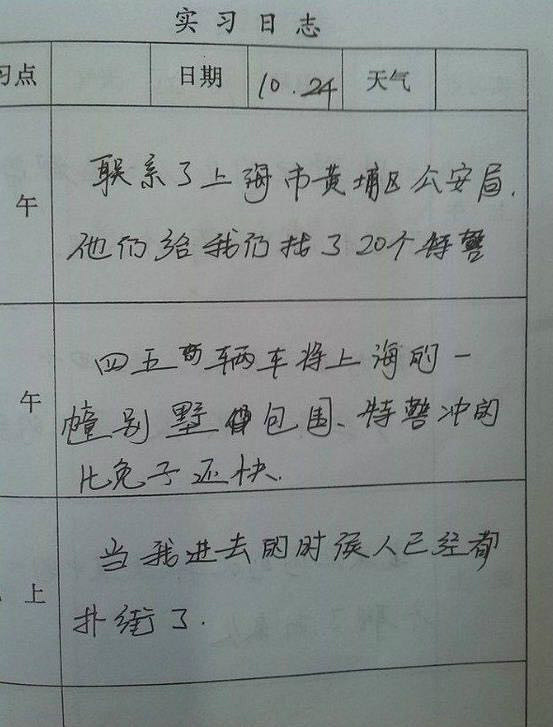 实习日志
习点 日期 10.24 天气
午 联系了上海市黄埔区公安局,
他们给我们找了20个特警
午 四五辆车将上海的一
幢别墅包围、特警冲的
比兔子还快.
上 当我进去的时候人已经都
扑街了.